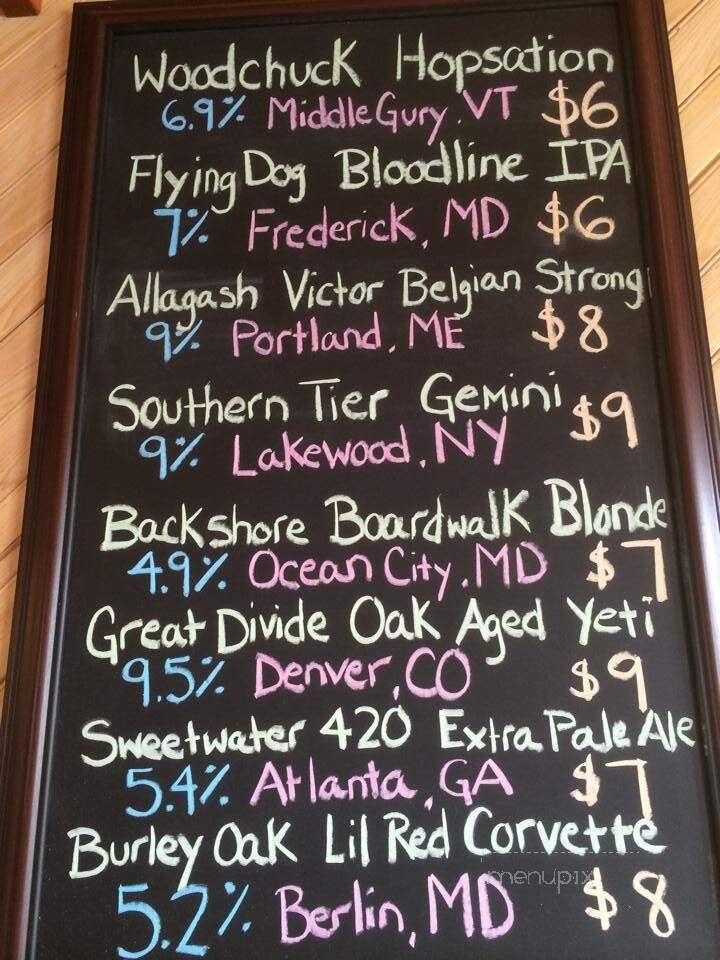 Woodchuck Hopsation
6.9% MiddleGury, VT $6
Flying Dog Bloodline IPA
7% Frederick, MD $6
Allagash Victor Belgian Strong
9% Portland, ME $8
Southern Tier Gemini $9
9% Lakewood, NY
Backshore Boardwalk Blonde
4.9% Ocean City, MD $7
Great Divide Oak Aged Yeti
9.5% Denver, CO $9
Sweetwater 420 Extra Pale Ale
5.4% Atlanta, GA $7
Burley Oak Lil Red Corvette
menupix
5.2% Berlin, MD $8